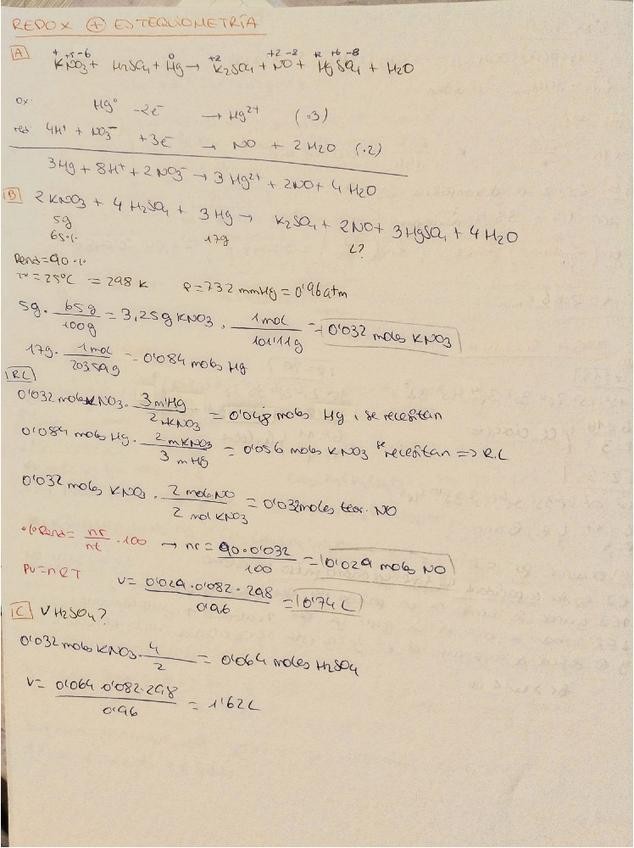 REDOX ⊕ ESTEQUIOMETRÍA
A
+ +5 -6 0 +2 +2 -2 +2 +6 -8
KNO3 + H2SO4 + Hg → K2SO4 + NO + HgSO4 + H2O
Ox: Hg⁰ -2e⁻ → Hg²⁺ (·3)
red: 4H⁺ + NO3⁻ +3e⁻ → NO + 2H2O (·2)
3Hg + 8H⁺ + 2NO3⁻ → 3Hg²⁺ + 2NO + 4H2O
B 2KNO3 + 4H2SO4 + 3Hg → K2SO4 + 2NO + 3HgSO4 + 4H2O
5g 17g L?
65%
Rend = 90%
Tª = 25ºC = 298K P = 732 mmHg = 0'96 atm
5g · 65g/100g = 3,25g KNO3 · 1mol/101'11g = 0'032 moles KNO3
17g · 1mol/203'59g = 0'084 mols Hg
RL
0'032 mols KNO3 · 3mHg/2mKNO3 = 0'048 moles Hg, se necesitan
0'084 mols Hg · 2mKNO3/3mHg = 0'056 mols KNO3 se necesitan => R.L
0'032 moles KNO3 · 2 mols NO/2 mol KNO3 = 0'032 moles teor. NO
% Rend = nr/nt · 100 → nr = 90·0'032/100 = 0'029 moles NO
PV = nRT V = 0'029·0'082·298/0'96 = 0'74 L
C V H2SO4?
0'032 mols KNO3 · 4/2 = 0'064 moles H2SO4
V = 0'064·0'082·298/0'96 = 1'62L